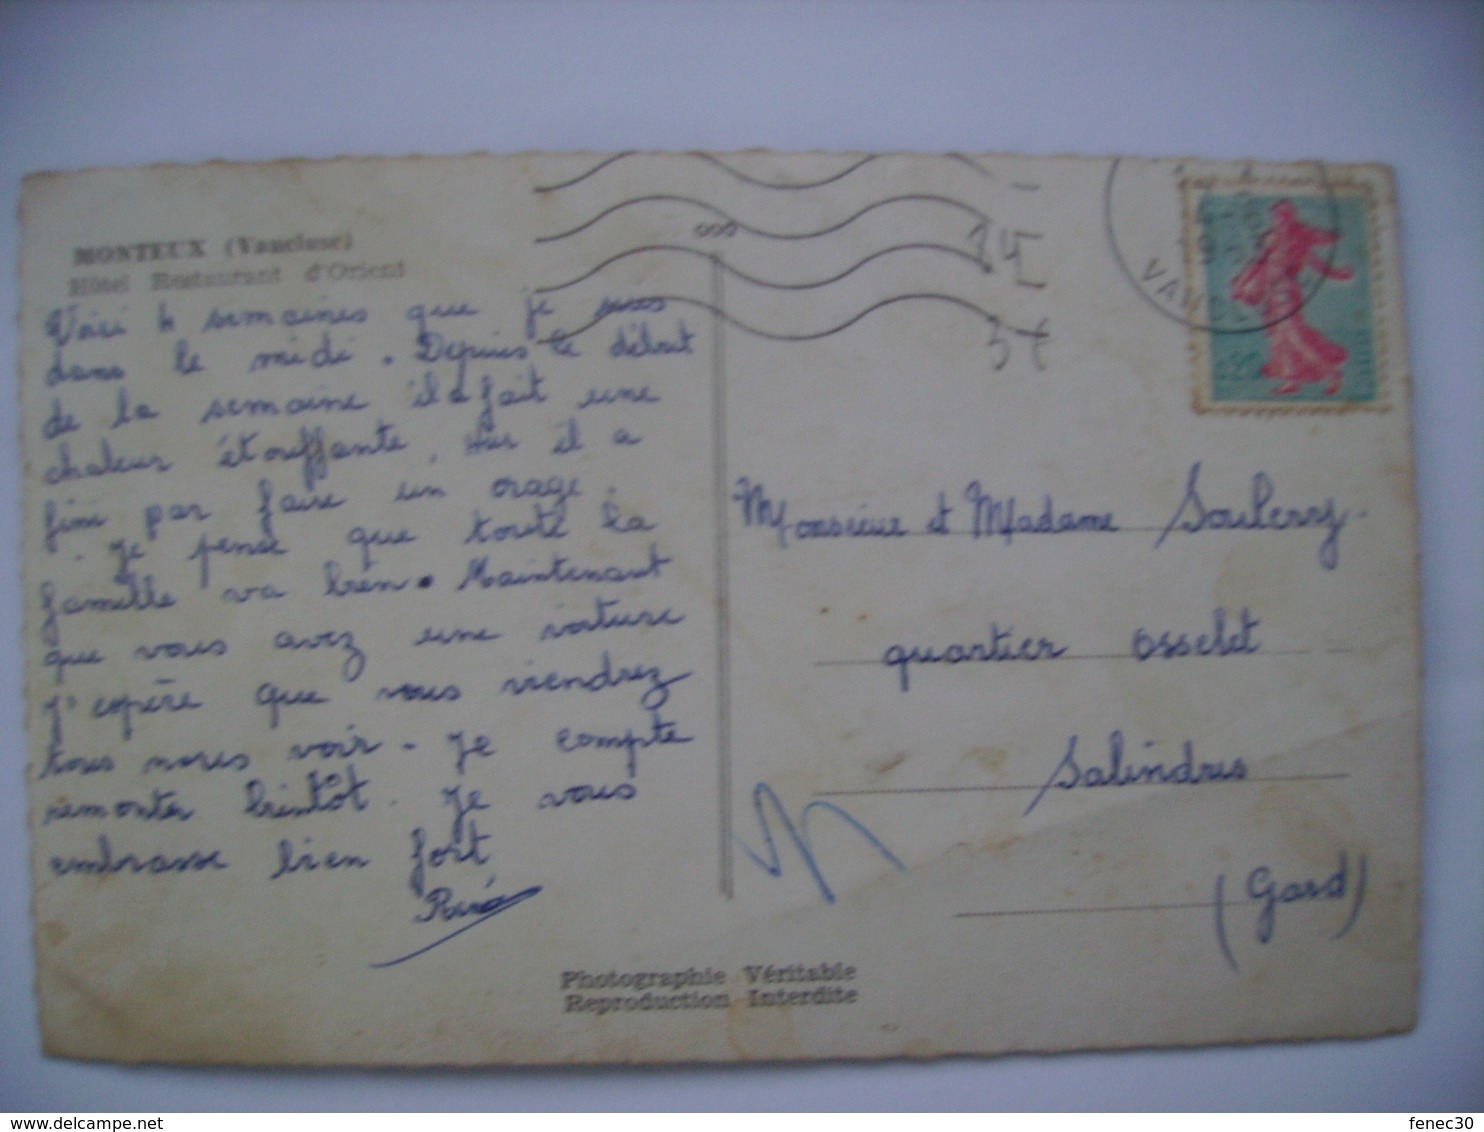 MONTEUX (Vaucluse)
Hôtel Restaurant d'Orient
Voici 4 semaines que je suis
dans le midi. Depuis le début
de la semaine il a fait une
chaleur étouffante. Hier il a
fini par faire un orage.
. Je pense que toute la
famille va bien. Maintenant
que vous avez une voiture
j'espère que vous viendrez
tous nous voir. Je compte
remonter bientôt. Je vous
embrasse bien fort
000
Monsieur et Madame Soulerry.
quartier osselet
Salindres
(Gard)
Photographie Véritable
Reproduction Interdite
delcampe.net
fenec30